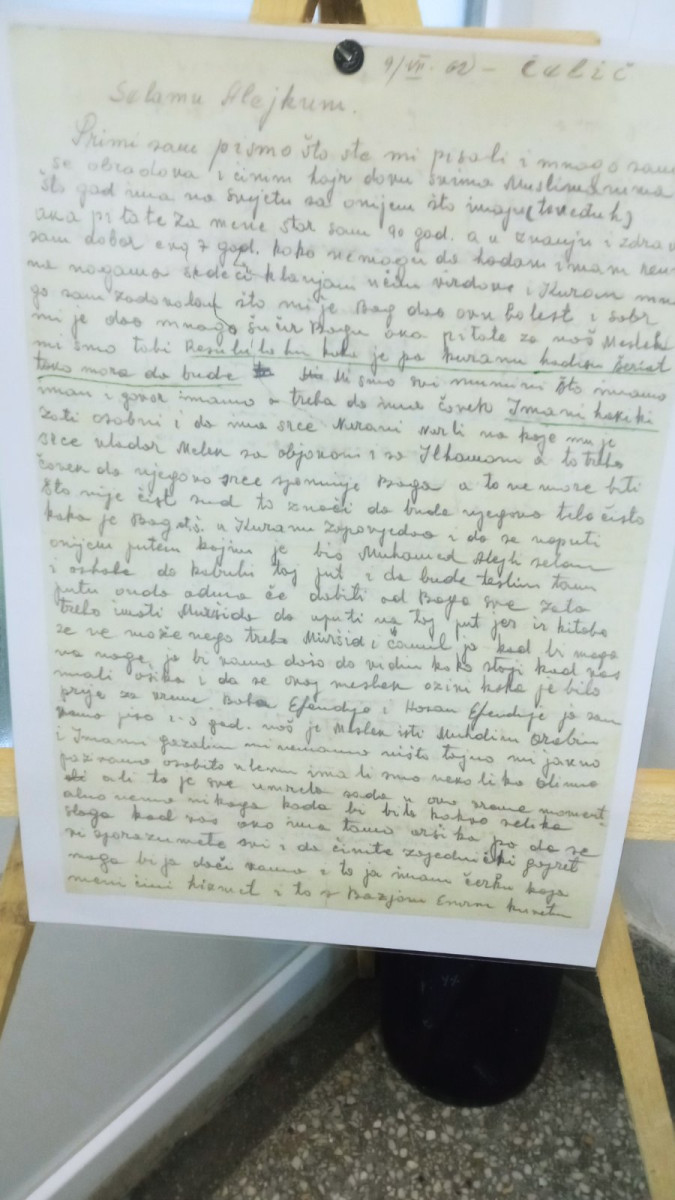 9/VII. 62 - Čelić
Selamu Alejkum.
Primi sam pismo što ste mi pisali i mnogo sam
se obradova i činim hajr dovu svima Muslimanima
što god ima na svijetu sa onijem što imaju (tovheduh)
ava pitate za mene star sam 90 god. a u znanju i zdrav
sam dobar evo 7 god. kako nemogu da hodam imam
na nogama sedeči klanjam učim virdove i Kuram
go sam zadovoljan što mi je Bog dao ovu bolest i sabr
mi je dao mnogo šučur Bogu ova pitate za naš Meslek
mi smo tabi Resulu kako je po kuranu hadisu Šeriat
tako mora da bude Mi smo svi mumini što imamo
iman i govor imamo a treba da ima čovek Imani hakiki
zati osobni i da ima srce Nurani Narli na koje mu je
srce vladar Melek sa objavom i sa Ilhamom a to treba
čovek da njegovo srce spominje Boga a to ne more biti
što nije čist sud to znači da bude njegovo telo čisto
kako je Bog dž.š. u Kuranu zapovjedao i da se naputi
onijem putem kojim je bio Muhamed Alejh selam
i ashabe da kabuli taj put i da bude teslim tam
putu onda odma če dobiti od Boga sve zato
treba imati Muršida da uputi na taj put jer iz kitaba
se ne može nego treba Muršid i čamul ja kad bi moga
na noge ja bi vamo došo da vidim kako stoji kod vas
imali ošika i da se ovaj meslek ozivi kako je bilo
prije za vreme Baba Efendije i Hasan Efendije ja sam
vamo jiso 2-3 god. naš je Meslek isti Muhidin Arabin
i Imami gazalin mi nemamo ništo tajno mi jasno
pozivamo osobito ulemu imali smo nekoliko alima
ali to je sve umrelo sada u ovo vreme moment
alno nema nikoga kada bi bila kakva velika
sloga kod vas ako ima tamo ošika pa da se
vi sporazumete svi i da činite zajednički gajret
moga bi ja doči vamo i to ja imam čerku koja
meni čini hizmet i to s Bazjom